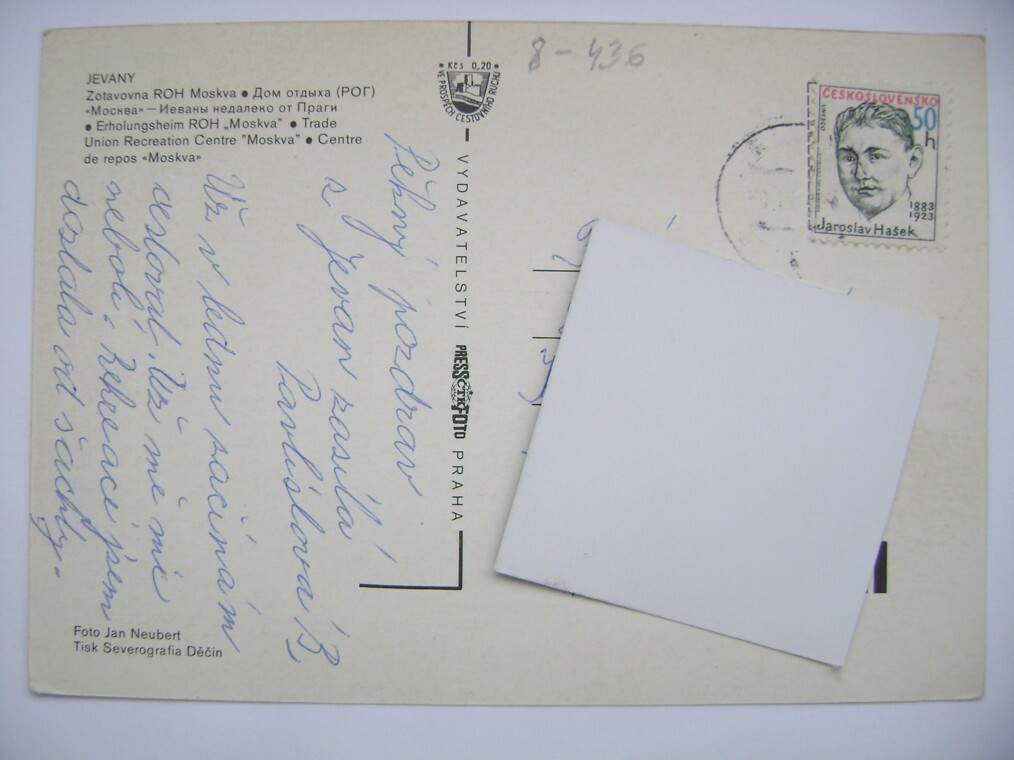 JEVANY
Zotavovna ROH Moskva ● Дом отдыха (РОГ)
«Москва» — Иеваны недалеко от Праги
● Erholungsheim ROH „Moskva" ● Trade
Union Recreation Centre "Moskva" ● Centre
de repos «Moskva»
8-436
* Kčs 0,20 *
VE PROSPĚCH CESTOVNÍHO RUCHU
VYDAVATELSTVÍ PRESSFOTO PRAHA
ČTK
ČESKOSLOVENSKO
50
h
UNESCO
1883
1923
Jaroslav Hašek
Pěkný pozdrav
z Jevan zasílá
Pavlíslova B.
Už v lednu začínám
cestovat. Už mě nic
nebolí. Rekreaci jsem
dostala od šachty.
Foto Jan Neubert
Tisk Severografia Děčín